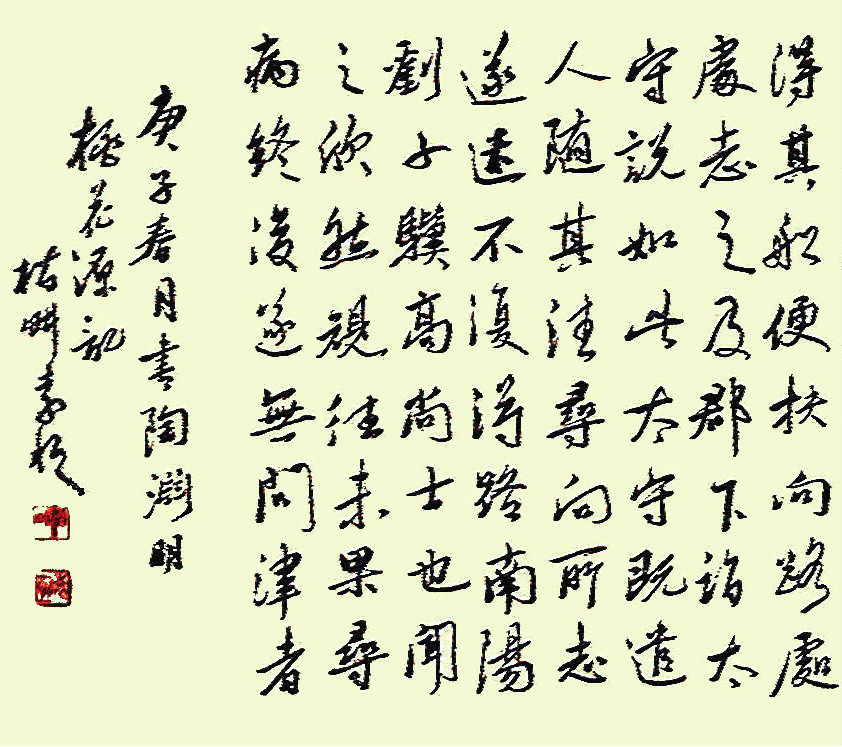 得其船便扶向路處
處志之及郡下詣太
守說如此太守既遣
人隨其往尋向所志
遂迷不復得路南陽
劉子驥高尚士也聞
之欣然規往未果尋
病終後遂無問津者
庚子春月書陶淵明
桃花源記